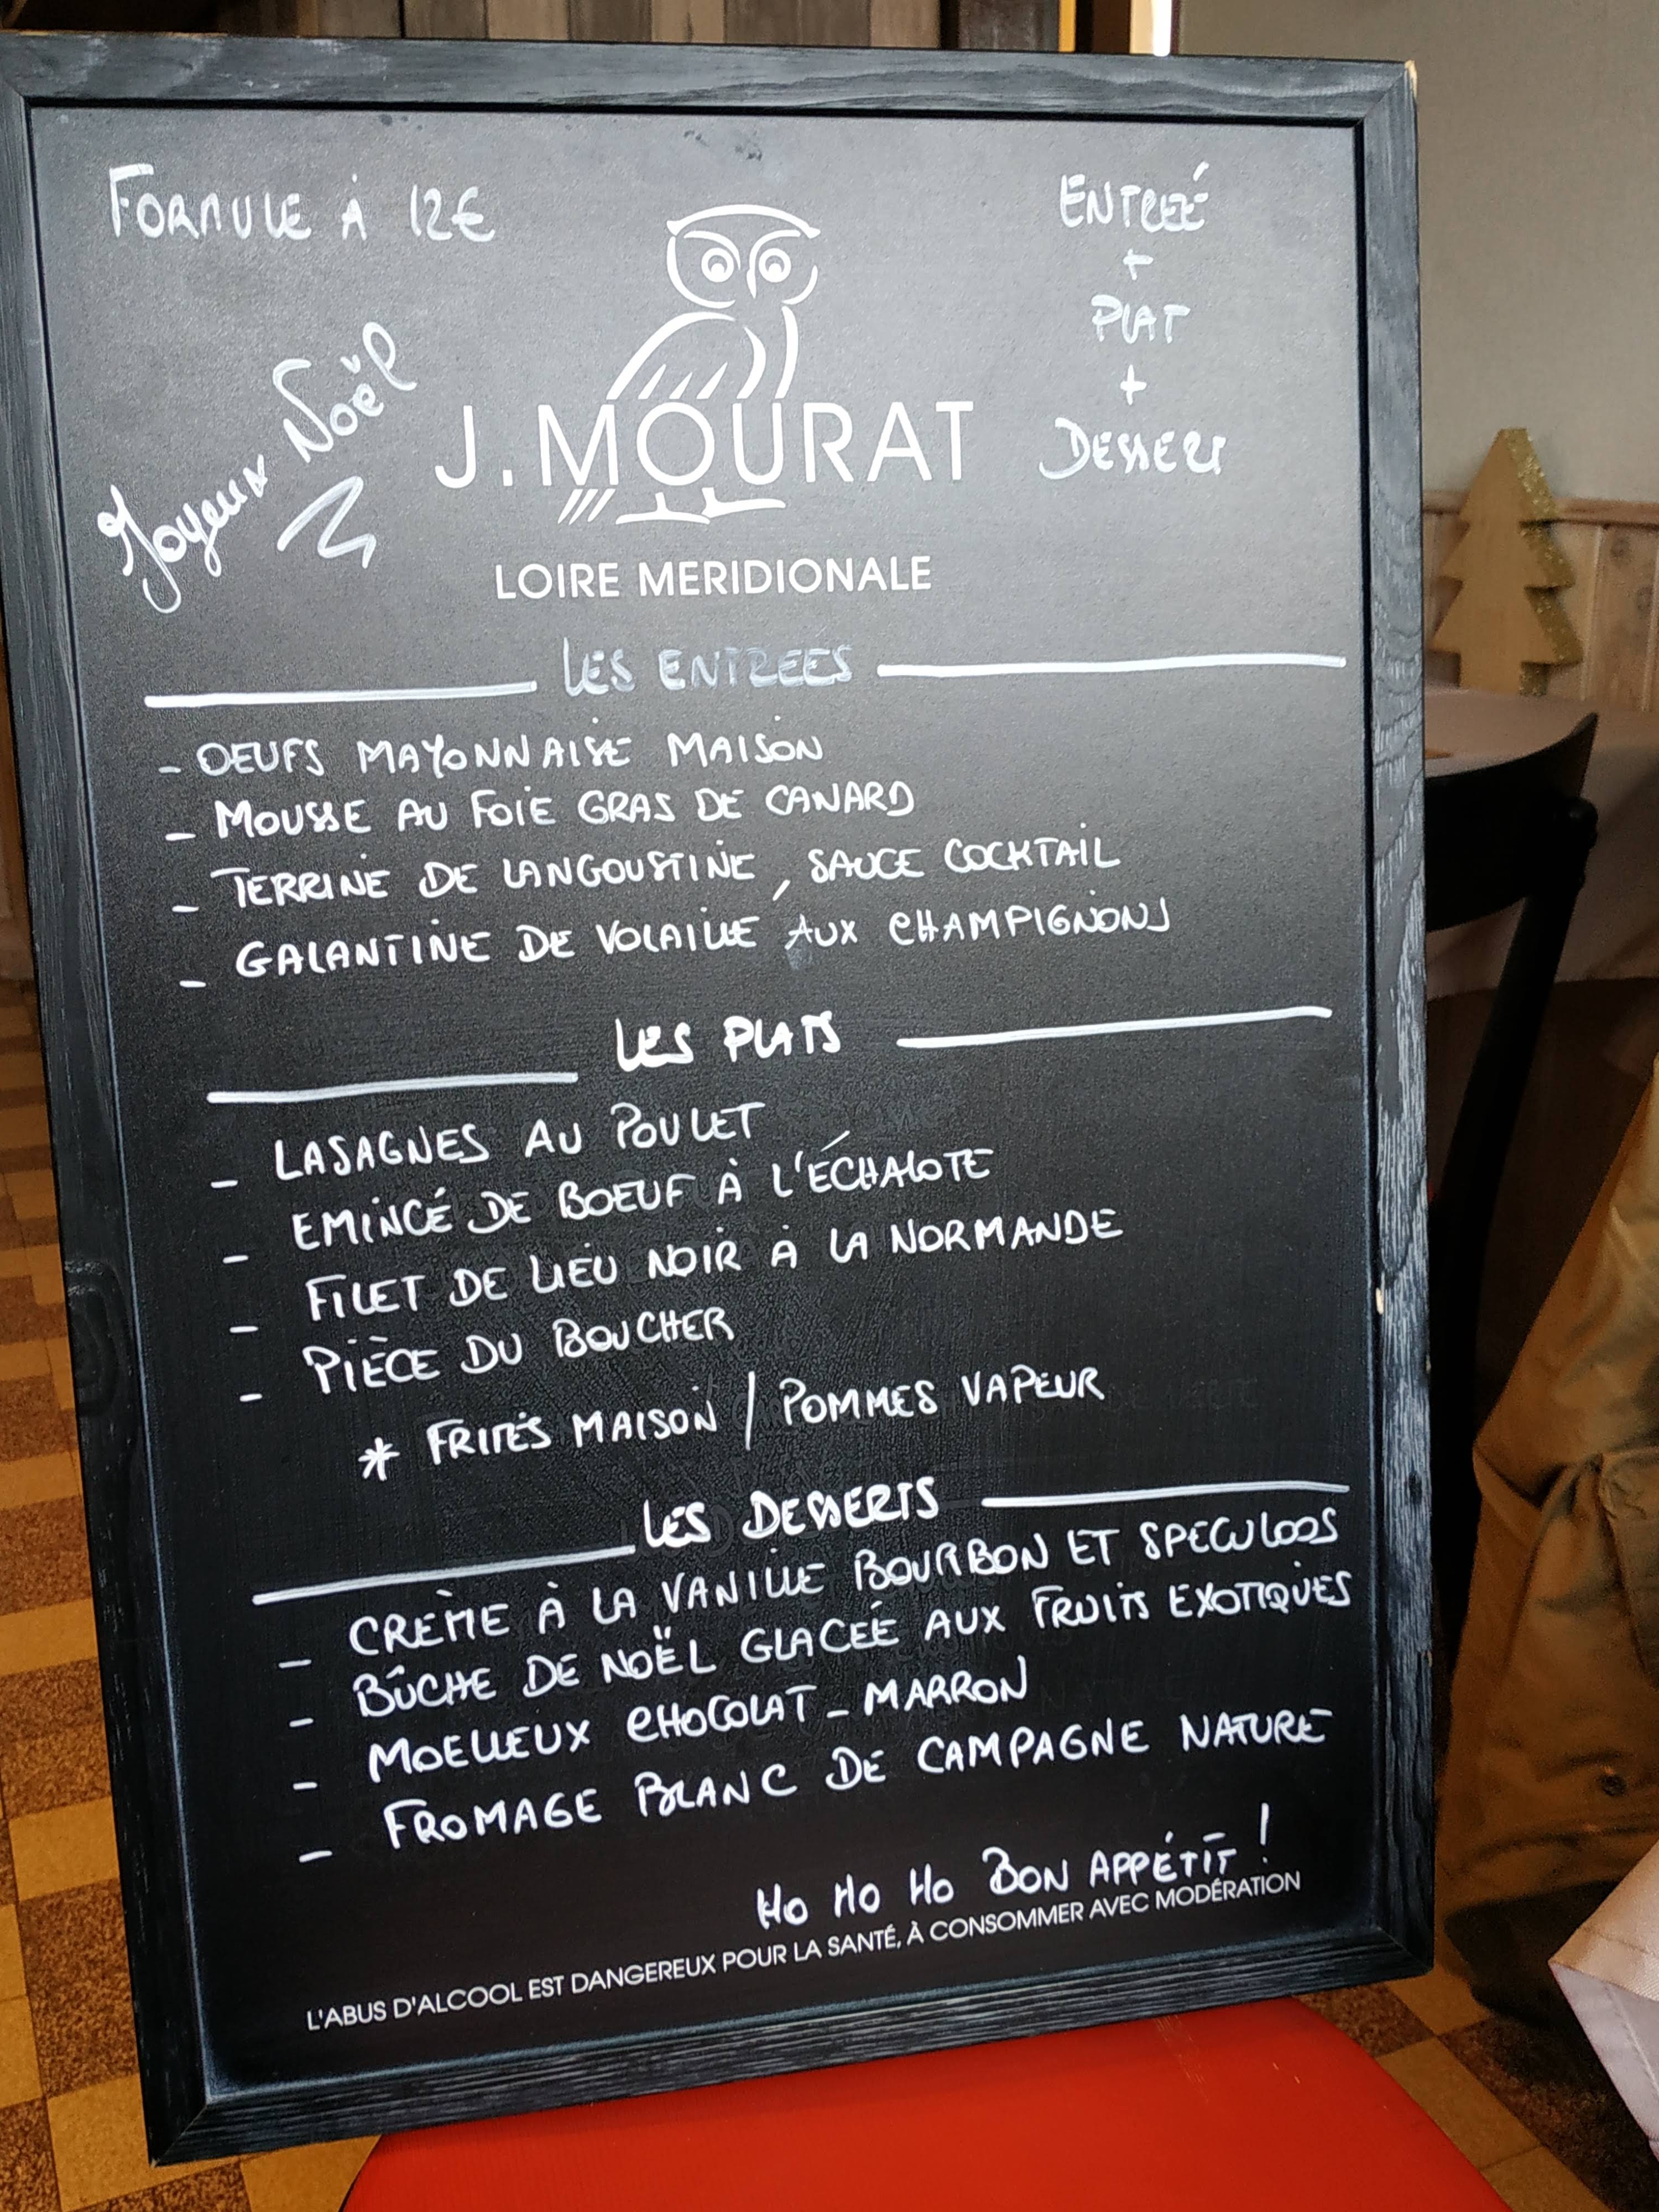 FORMULE À 12€
ENTREÉ
+
PLAT
+
DESSERT
Joyeux Noël
J. MOURAT
LOIRE MERIDIONALE
LES ENTREES
- OEUFS MAYONNAISE MAISON
- MOUSSE AU FOIE GRAS DE CANARD
- TERRINE DE LANGOUSTINE, SAUCE COCKTAIL
- GALANTINE DE VOLAILLE AUX CHAMPIGNONS
LES PLATS
- LASAGNES AU POULET
- EMINCÉ DE BOEUF À L'ÉCHALOTE
- FILET DE LIEU NOIR À LA NORMANDE
- PIÈCE DU BOUCHER
* FRITES MAISON / POMMES VAPEUR
LES DESSERTS
- CRÈME À LA VANILLE BOURBON ET SPECULOOS
- BÛCHE DE NOËL GLACÉE AUX FRUITS EXOTIQUES
- MOELLEUX CHOCOLAT - MARRON
- FROMAGE BLANC DE CAMPAGNE NATURE
HO HO HO BON APPÉTIT !
L'ABUS D'ALCOOL EST DANGEREUX POUR LA SANTÉ, À CONSOMMER AVEC MODÉRATION